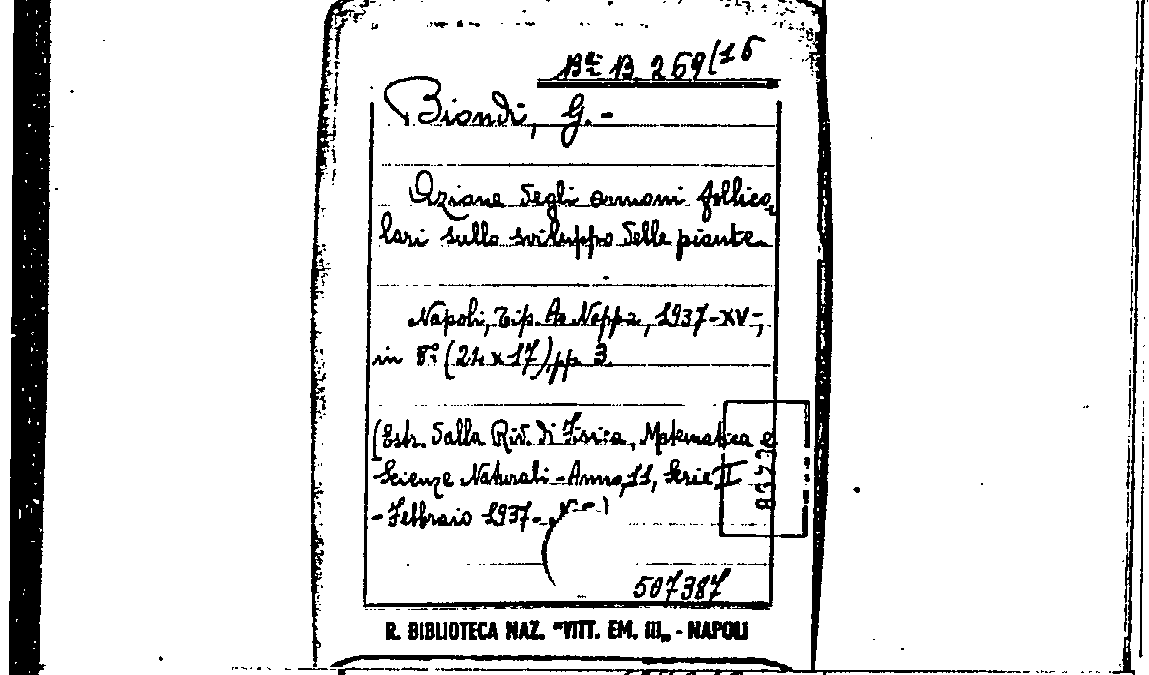 Bta B. 269(16
Biondi, G. -
Azione degli ormoni follico-
lari sullo sviluppo delle piante.
Napoli, Tip. A. Nappa, 1937-XV-,
in 8º (24 x 17), pp. 3.
(Estr. dalla Riv. di Fisica, Matematica e
Scienze Naturali - Anno 11, Serie II
- Febbraio 1937-
507387
R. BIBLIOTECA NAZ. "VITT. EM. III„ - NAPOLI